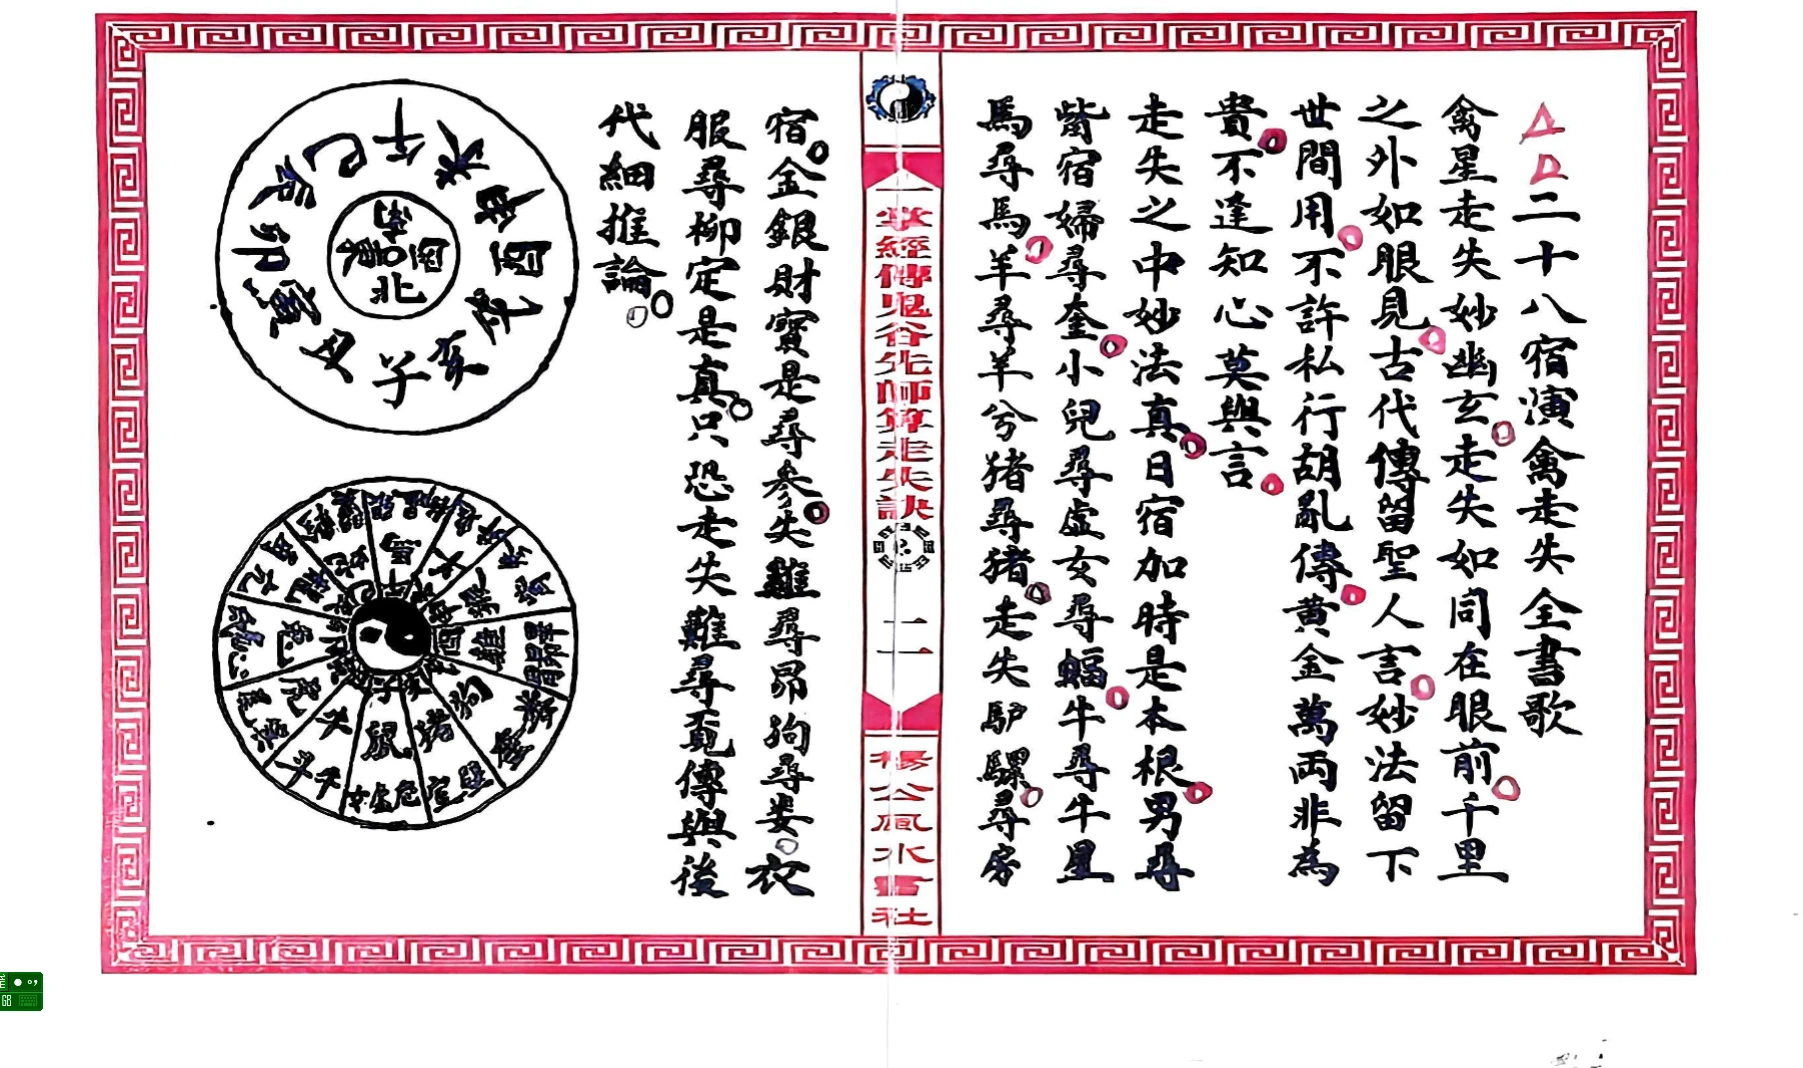 二十八宿演禽走失全書歌
禽星走失妙幽玄走失如同在眼前千里
之外如眼見古代傳留聖人言妙法留下
世間用不許私行胡亂傳黄金萬両非為
貴不逢知心莫與言
走失之中妙法真日宿加時是本根男尋
觜宿婦尋奎小兒尋虛女尋蝠牛尋牛星
馬尋馬羊尋羊兮猪尋猪走失馿騾尋房
一掌經傳鬼谷先師算走失訣
二
楊公風水書社
宿金銀財寳是尋參失雞尋昴狗尋婁衣
服尋柳定是真只恐走失難尋覓傳與後
代細推論
午
未
申
酉
戌
亥
子
丑
寅
卯
辰
巳
南
西
北
東
馬
羊
猴
雞
狗
猪
鼠
牛
虎
兔
龍
蛇
女虛危
室壁
奎婁
胃昴畢
斗牛
尾箕
氐房心
角亢